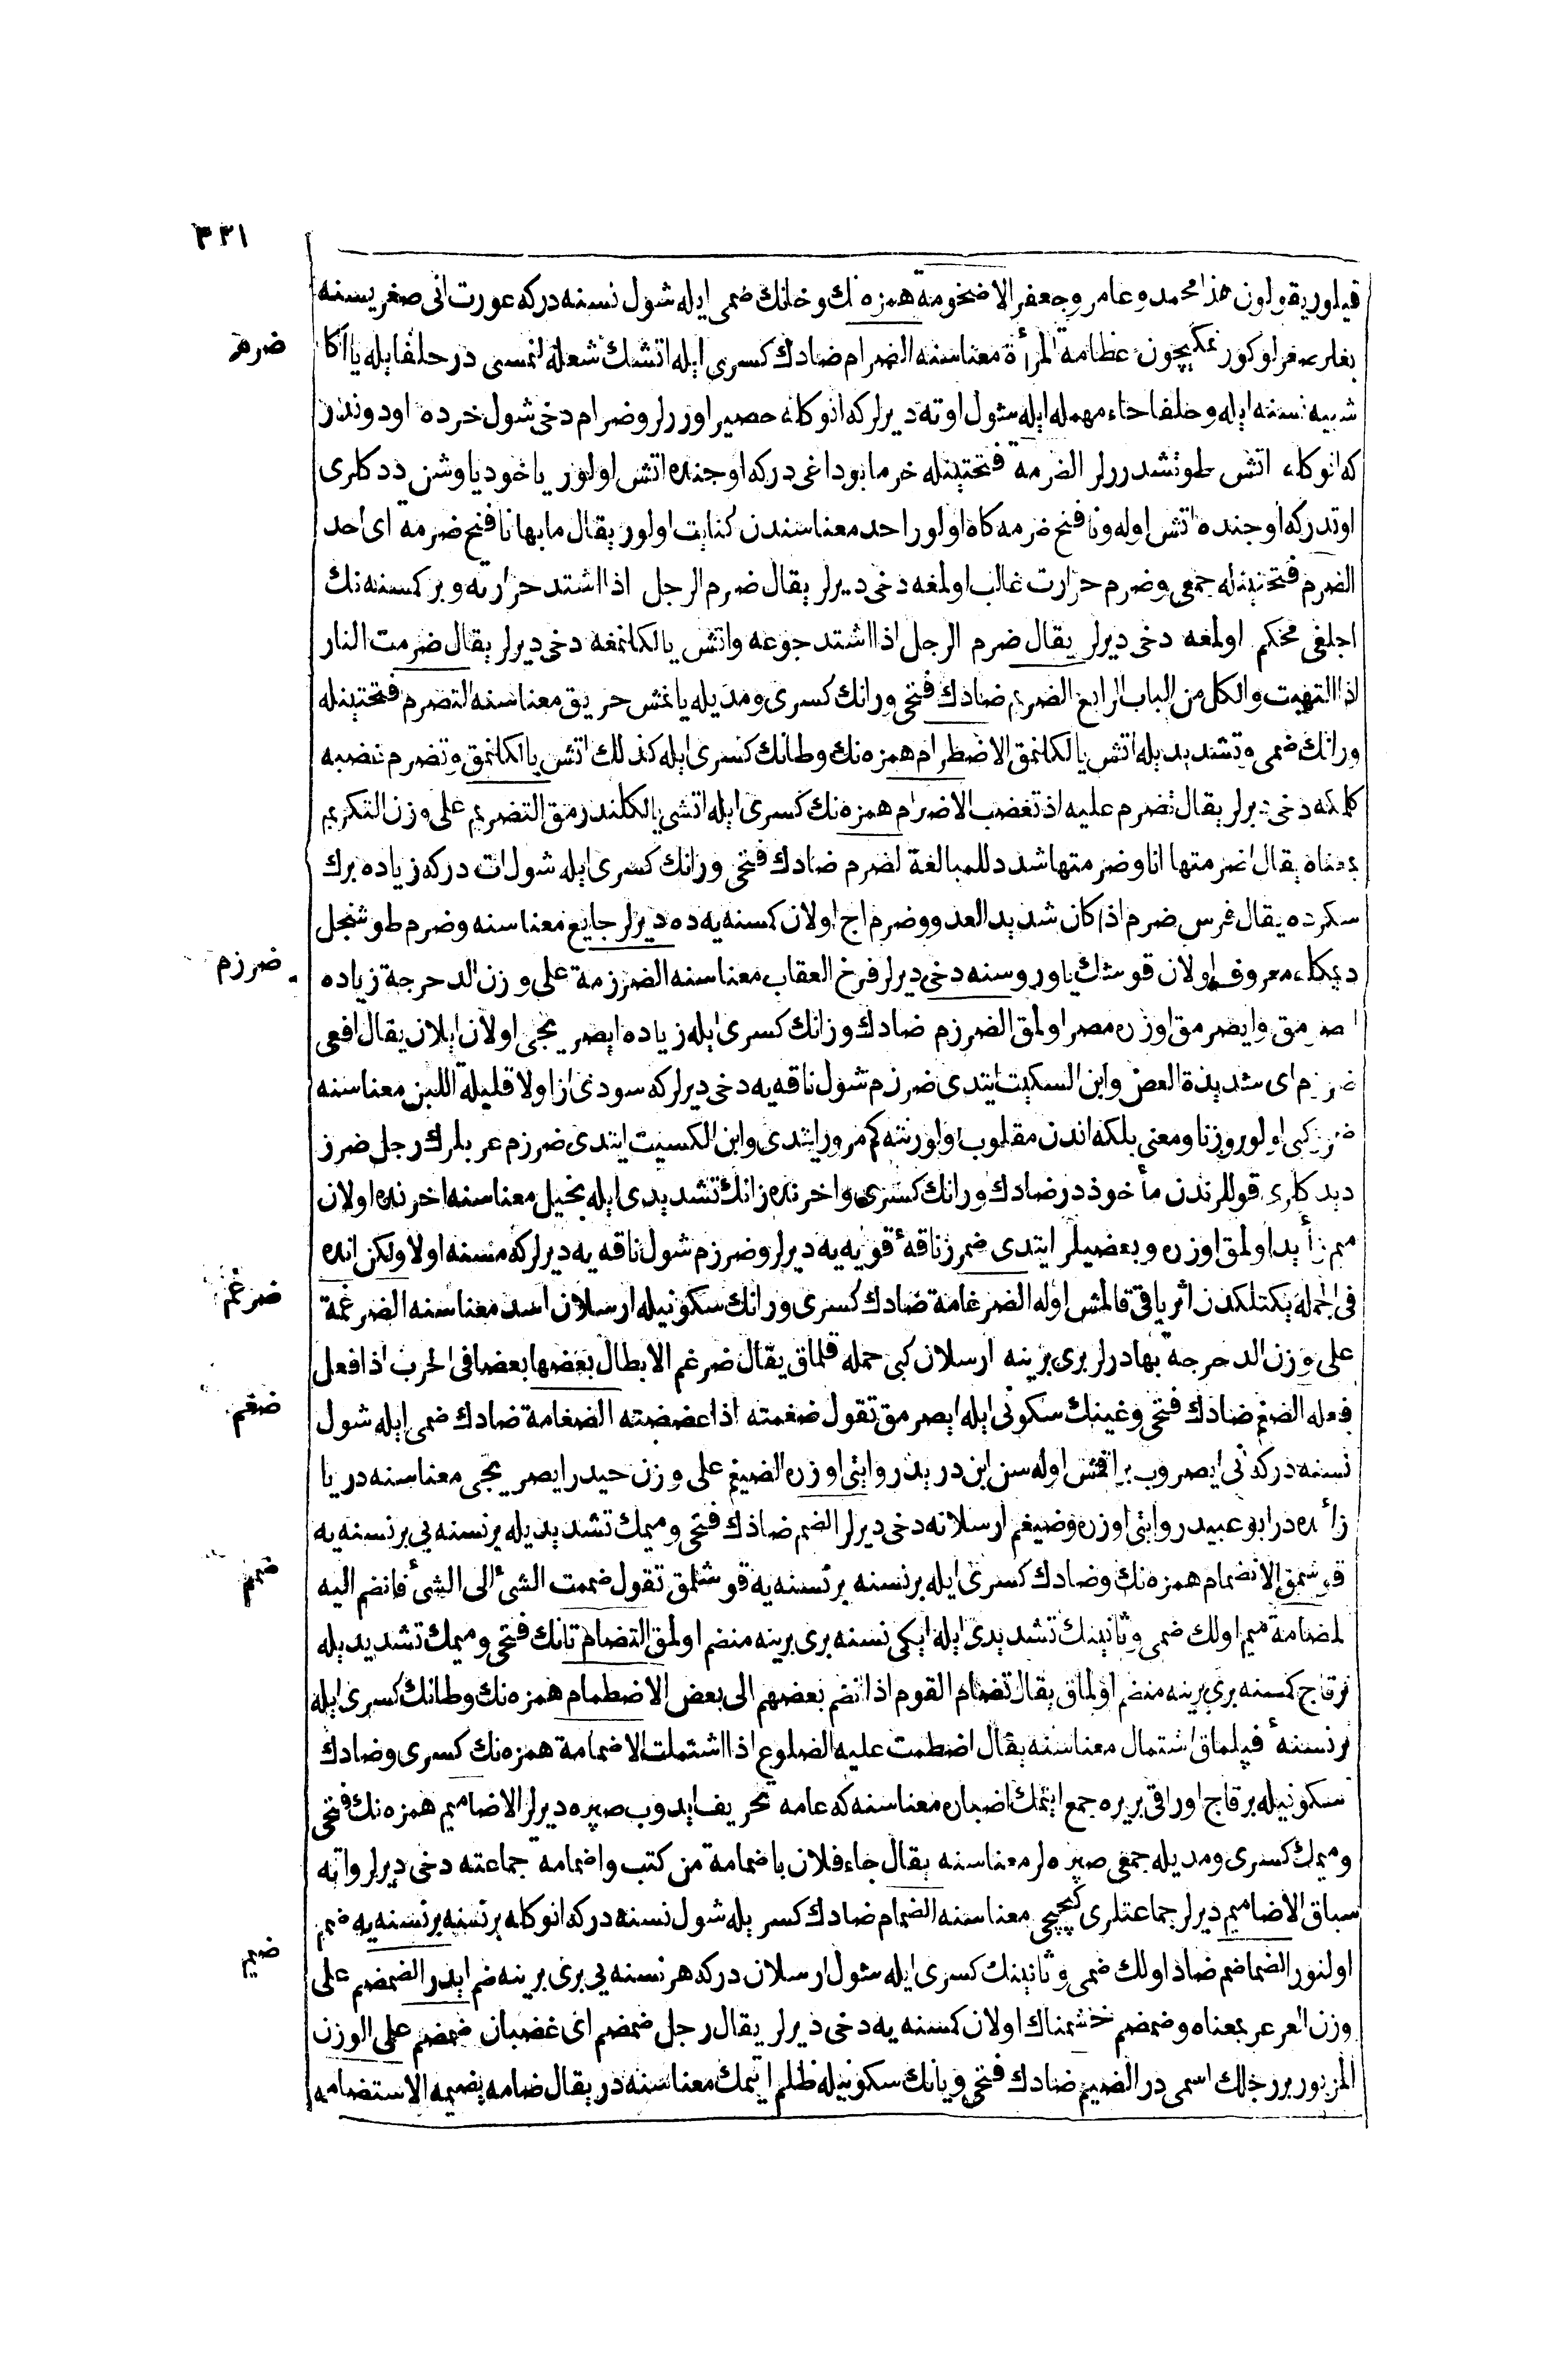 ٣٢١
قیلور یقولون هذا محمده وعامر وجعفر الاضخومة همزه نك وخانك ضمی ایله شول نسنه درکه عورت انی صغریسنه
ضرم
بغلر صغرلو کورنمکیچون عظامة المرأة معناسنه الضرام ضادك کسری ایله اتشك شعله لنمسی در حلفا ایله یا اکا
شبیه نسنه ایله وحلفا حاء مهمله ایله شول اوته دیرلرکه انوکله حصیر اوررلر وضرام دخی شول خرده اودوندر
که انوکله اتش طوتشدررلر الضرمة فتحتینله خرما بوداغی درکه اوجنده اتش اولور یاخود یاوشن ددکلری
اوتدرکه اوجنده اتش اوله ونافخ ضرمه کاه اولور احد معناسندن کنایت اولور یقال ما بها نافخ ضرمة ای احد
الضرم فتحتینله جمعی وضرم حرارت غالب اولمغه دخی دیرلر یقال ضرم الرجل اذا اشتد حرارته وبر کسنه نك
اجلغی محکم اولمغه دخی دیرلر یقال ضرم الرجل اذا اشتد جوعه واتش یالکلنمغه دخی دیرلر یقال ضرمت النار
اذا التهبت والکل من الباب الرابع الضریم ضادك فتحی ورانك کسری ومدیله یانمش حریق معناسنه التضرم فتحتینله
ورانك ضمی وتشدیدیله اتش یالکلنمق الاضطرام همزه نك وطانك کسری ایله کذلك اتش یالکلنمق وتضرم غضبه
کلمکه دخی دیرلر یقال تضرم علیه اذ تغضب الاضرام همزه نك کسری ایله اتشی یالکلندرمق التضریم علی وزن التکریم
بمعناه یقال اضرمتها انا وضرمتها شدد للمبالغة لضرم ضادك فتحی ورانك کسری ایله شول ات درکه زیاده برك
سکرده یقال فرس ضرم اذا کان شدید العدو وضرم اج اولان کسنه یه ده دیرلر جایع معناسنه وضرم طوشنجل
ضرزم
دیمکله معروف اولان قوشك یاوروسنه دخی دیرلر فرخ العقاب معناسنه الضرزمة علی وزن الدحرجة زیاده
اصرمق وایصرمق اوزره مصر اولمق الضرزم ضادك وزانك کسری ایله زیاده ایصریجی اولان ایلان یقال افعی
ضرزم ای شدیدة العض وابن السکیت ایتدی ضرزم شول ناقه یه دخی دیرلرکه سودی از اولا قلیلة اللبن معناسنه
ضمرز کبی اولور وزنا ومعنی بلکه اندن مقلوب اولور نته کم مرور ایتدی وابن الکسیت ایتدی ضرزم عربلرك رجل ضرز
دیدکلری قوللرندن مأخوذ در ضادك ورانك کسری واخرنده زانك تشدیدی ایله بخیل معناسنه اخرنده اولان
میم زأید اولمق اوزره وبعضیلر ایتدی ضمرز ناقۀ قویه یه دیرلر وضرزم شول ناقه یه دیرلرکه مسنه اولا ولکن انده
ضرغم
فی الجمله یکتلکدن اثر باقی قالمش اوله الضرغامة ضادك کسری ورانك سکونیله ارسلان اسد معناسنه الضرغمة
علی وزن الدحرجة بهادرلر بری برینه ارسلان کبی حمله قلماق یقال ضرغم الابطال بعضها بعضا فی الحرب اذا فعل
ضغم
فعله الضغم ضادك فتحی وغینك سکونی ایله ایصرمق تقول ضغمته اذا عضضته الضغامة ضادك ضمی ایله شول
نسنه درکه انی ایصروب براقمش اوله سن ابن درید روایتی اوزره الضیغم علی وزن حیدر ایصریجی معناسنه در یا
زأده در ابو عبید روایتی اوزره وضیغم ارسلانه دخی دیرلر الضم ضادك فتحی ومیمك تشدیدیله برنسنه یی برنسنه یه
ضمم
قوشمق الانضمام همزه نك وضادك کسری ایله برنسنه برنسنه یه قوشلمق تقول ضممت الشئ الی الشئ فانضم الیه
لمضامة میم اولك ضمی وثانینك تشدیدی ایله ایکی نسنه بری برینه منضم اولمق التضام تانك فتحی ومیمك تشدیدیله
برقاج کسنه بری برینه منضم اولماق یقال تضام القوم اذا انضم بعضهم الی بعض الاضطمام همزه نك وطانك کسری ایله
برنسنۀ قپلماق اشتمال معناسنه یقال اضطمت علیه الضلوع اذا اشتملت الاضمامة همزه نك کسری وضادك
سکونیله برقاج اوراقی بریره جمع ایتمك اضباره معناسنه که عامه تحریف ایدوب صپره دیرلر الاضامیم همزه نك فتحی
ومیمك کسری ومدیله جمعی صپره لر معناسنه یقال جاء فلان باضمامة من کتب واضمامه جماعته دخی دیرلر واته
سباق الاضامیم دیرلر جماعتلری کچیجی معناسنه الضمام ضادك کسر یله شول نسنه درکه انوکله برنسنه برنسنه یه ضم
ضیم
اولنور الضماضم ضاد اولك ضمی وثانینك کسری ایله شول ارسلان درکه هر نسنه یی بری برینه ضم ایدر الضمضم علی
وزن العرعر بمعناه وضمضم خشمناك اولان کسنه یه دخی دیرلر یقال رجل ضمضم ای غضبان ضمضم علی الوزن
المزبور بر رجلك اسمی در الضیم ضادك فتحی ویانك سکونیله ظلم ایتمك معناسنه در یقال ضامه یضیمه الاستضامه